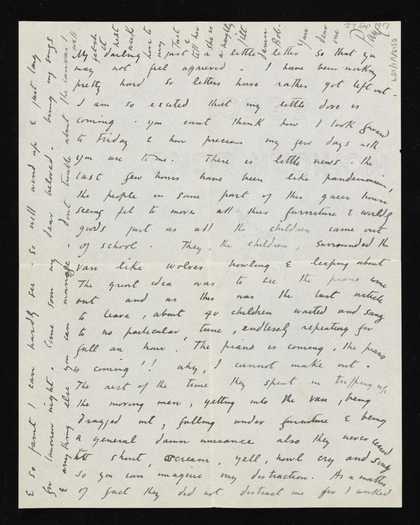 My darling just a little letter so that you
may not feel aggrieved. I have been working
pretty hard so letters have rather got left out.
I am so excited that my little dove is
coming. You cant think how I look forward
to Friday & how precious my few days with
you are to me. There is little news. The
last few hours have been like pandemonium,
the people in some part of this queer house
seeing fit to move all their furniture & worldly
goods just as all the children came out
of school. They, the children, surrounded the
van like wolves howling & leaping about
The great idea was to see the piano come
out and as this was the last article
to leave, about 40 children waited and sang
to no particular tune, endlessly repeating for
half an hour. 'The piano is coming, the piano
is coming'! why, I cannot make out.
The rest of the time they spent in tripping up
the moving men, getting into the van, being
dragged out, falling under furniture & being
a general damn nuisance also they never ceased
to shout, scream, yell, howl cry and sing
so you can imagine my distraction. As a matter
of fact they did not distract me for I worked
& so faint I can hardly see so will wind up & post
for tomorrow night. Come soon my dear beloved. bring my songs
& anything else you can manage. Dont trouble about the canvas